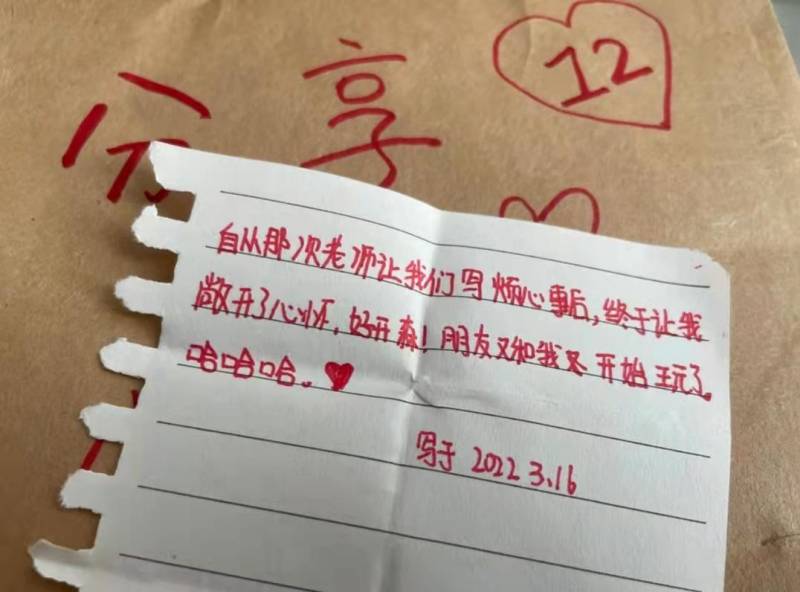 分享
12
自从那次老师让我们写烦心事后,终于让我
敞开了心怀,好开森!朋友又和我又开始玩了。
哈哈哈。
写于 2022 3.16